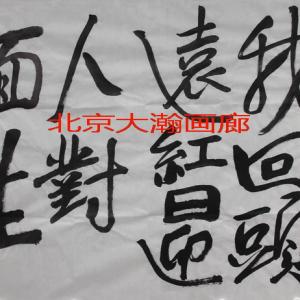 我回頭
遠紅日迎
人對
面生
北京大瀚画廊